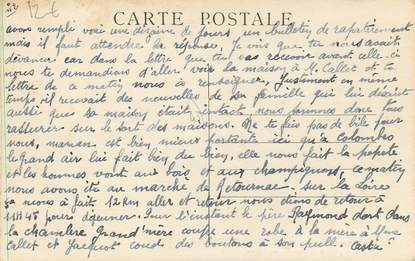 CARTE POSTALE
avons rempli voici une dizaine de jours, un bulletin de rapatriement
mais il faut attendre la réponse, Je vois que tu nous avais
devancé car dans la lettre que tu vas recevoir avant celle-ci
nous te demandions d'aller voir la maison à M. Callet et ta
lettre de ce matin nous a renseigner. Justement en même
temps il recevait des nouvelles de sa famille qui lui disait
aussi que sa maison était intact nous sommes donc tous
rassurer sur le sort des maisons. Ne te fais pas de bile pour
nous, maman est bien mieux portante ici qu'a colombes
le grand air lui fait bien du bien, elle nous fait la popote
et les hommes vont au bois et aux champignons, ce matin
nous avons été au marché de Retournac sur la Loire
ça nous a fait 12 km aller et retour nous étions de retour à
11H45 pour déjeuner. Pour l'instant le père Raymond dort dans
la chambre Grand'mère coupe une robe à la mère à Mme
Callet et Jacquot coud des boutons à son pull.